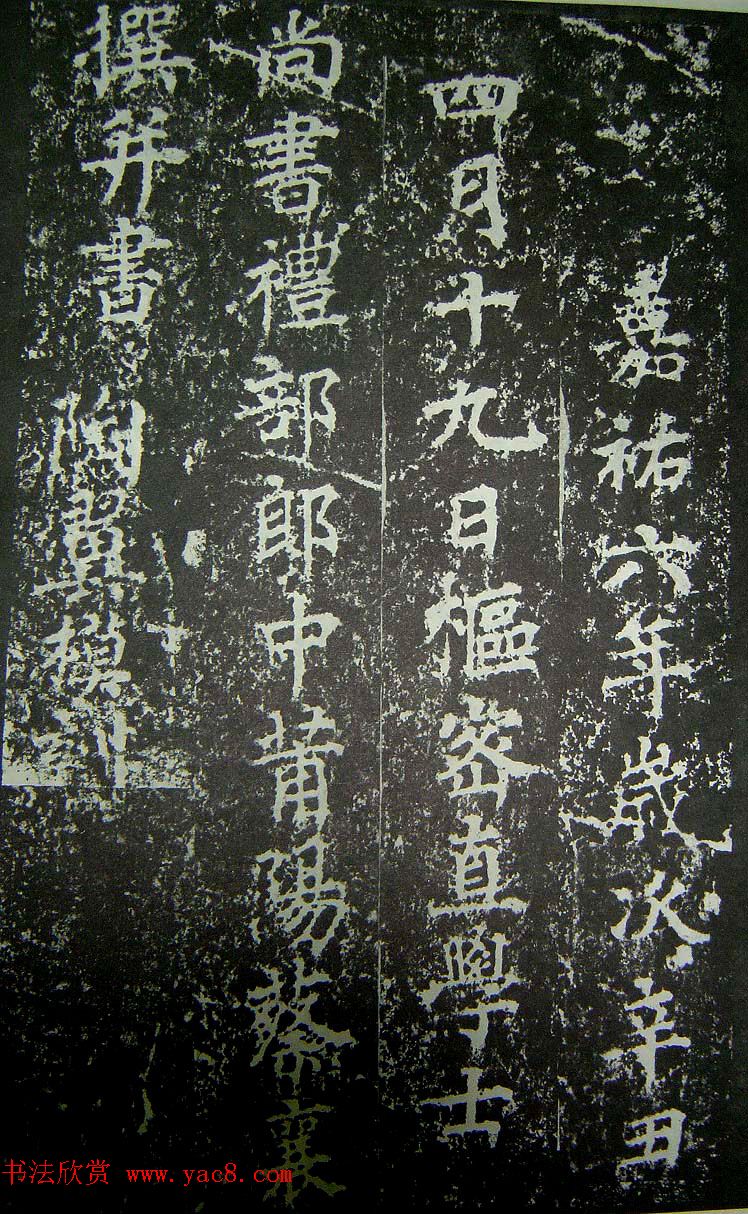 嘉祐六年歲次辛丑
四月十九日樞密直學士
尚書禮部郎中莆陽蔡襄
撰并書 陶翼模刻
书法欣赏 www.yac8.com